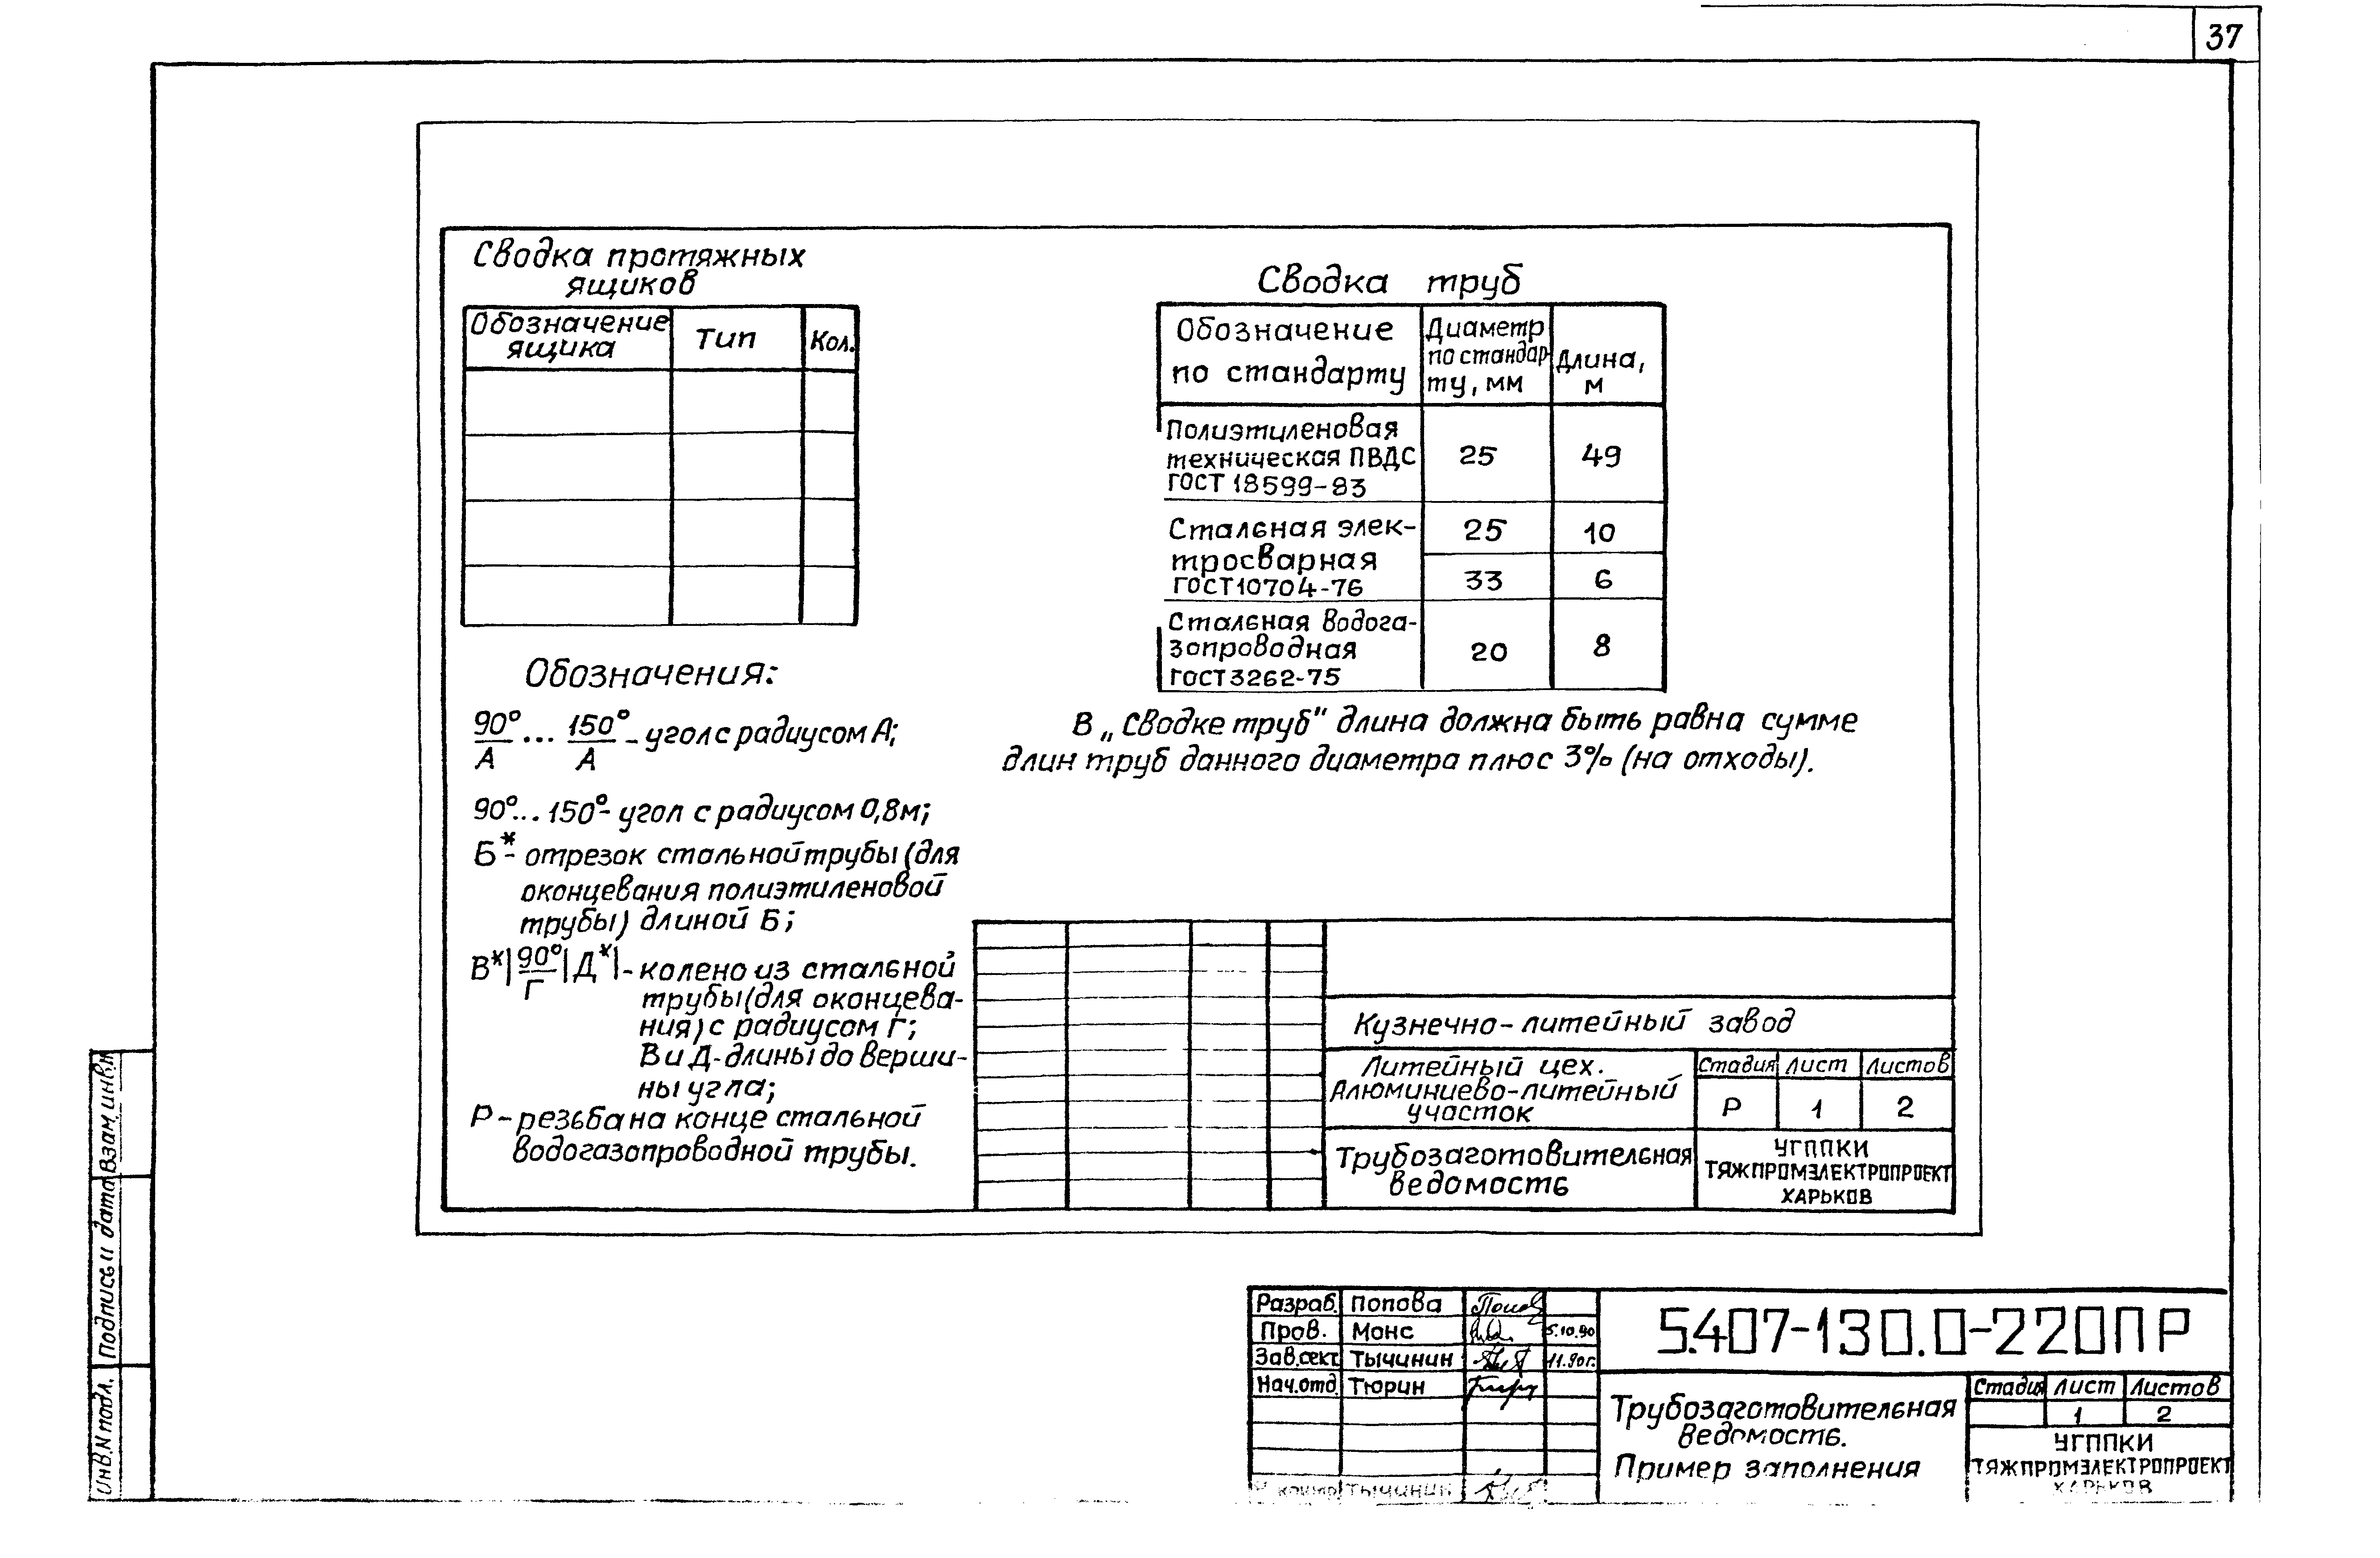 37
Сводка протяжных
ящиков
Обозначение
ящика
Тип
Кол.
Обозначения:
90°/А ... 150°/А - угол с радиусом А;
90°...150° - угол с радиусом 0,8м;
Б* - отрезок стальной трубы (для
оконцевания полиэтиленовой
трубы) длиной Б;
В*|90°/Г|Д*| - колено из стальной
трубы (для оконцева-
ния) с радиусом Г;
В и Д - длины до верши-
ны угла;
Р - резьба на конце стальной
водогазопроводной трубы.
Сводка труб
Обозначение
по стандарту
Диаметр
по стандар-
ту, мм
Длина,
м
Полиэтиленовая
техническая ПВДС
ГОСТ 18599-83
25
49
Стальная элек-
тросварная
ГОСТ 10704-76
25
10
33
6
Стальная водога-
зопроводная
ГОСТ 3262-75
20
8
В „Сводке труб" длина должна быть равна сумме
длин труб данного диаметра плюс 3% (на отходы).
Кузнечно-литейный завод
Литейный цех.
Алюминиево-литейный
участок
Стадия Лист Листов
Р 1 2
Трубозаготовительная
ведомость
УГППКИ
ТЯЖПРОМЭЛЕКТРОПРОЕКТ
ХАРЬКОВ
Инв.N подл. Подпись и дата Взам.инв.N
Разраб. Попова
Пров. Монс 5.10.90
Зав.сект. Тычинин 11.90г.
Нач.отд. Тюрин
Н.контр. Тычинин
5.407-130.0-220ПР
Трубозаготовительная
ведомость.
Пример заполнения
Стадия Лист Листов
1 2
УГППКИ
ТЯЖПРОМЭЛЕКТРОПРОЕКТ
ХАРЬКОВ